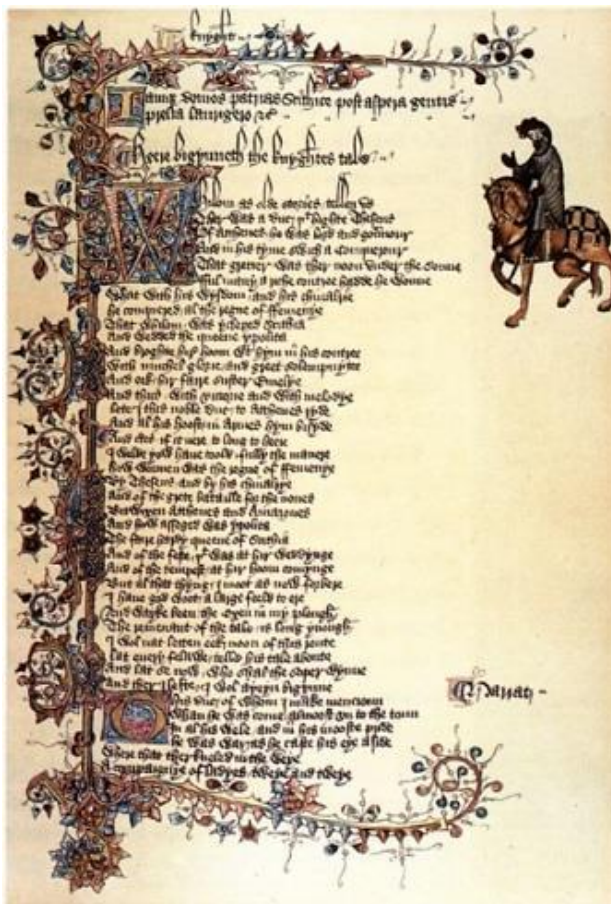 knyght
Iamque domos patrias Scithice post aspera gentis
prelia laurigero &c
Heere bigynneth the knyghtes tale
Whilom as olde stories tellen vs
Ther was a duc þt highte Theseus
Of Atthenes he was lord and gouernour
And in his tyme swich a Conquerour
That gretter was ther noon vnder the sonne
fful many a riche contree hadde he wonne
What with his wysdom and his chiualrie
he conquered al the regne of ffemenye
That whilom was ycleped Scithia
And wedded the queene ypolita
And broghte hire hoom with hym in his contree
With muchel glorie and greet solempnytee
And eek hir faire suster Emelye
And thus with victorie and with melodye
lete I this noble duc to Atthenes ryde
And al his hoost in Armes hym bisyde
And certes if it nere to long to heere
I wolde yow haue toold fully the manere
how wonnen was the regne of ffemenye
By Theseus and by his chiualrye
And of the grete bataille for the nones
Bitwixen Atthenes and Amazones
And how asseged was ypolita
The faire hardy queene of Scithia
And of the feste þt was at hir weddynge
And of the tempest at hir hoom comynge
But al that thyng I moot as now forbere
I haue god woot a large feeld to ere
And wayke been the Oxen in my plough
The remenant of the tale is long ynough
I wol nat letten eek noon of this route
lat euery felawe telle his tale aboute
And lat se now who shal the soper wynne
And ther I lefte I wol ayeyn bigynne
This duc of whom I make mencioun
Narrat
Whan he was come almoost vn to the toun
In al his wele and in his mooste pride
he was war as he caste his eye aside
Where that ther kneled in the weye
A compaignye of ladyes tweye and tweye